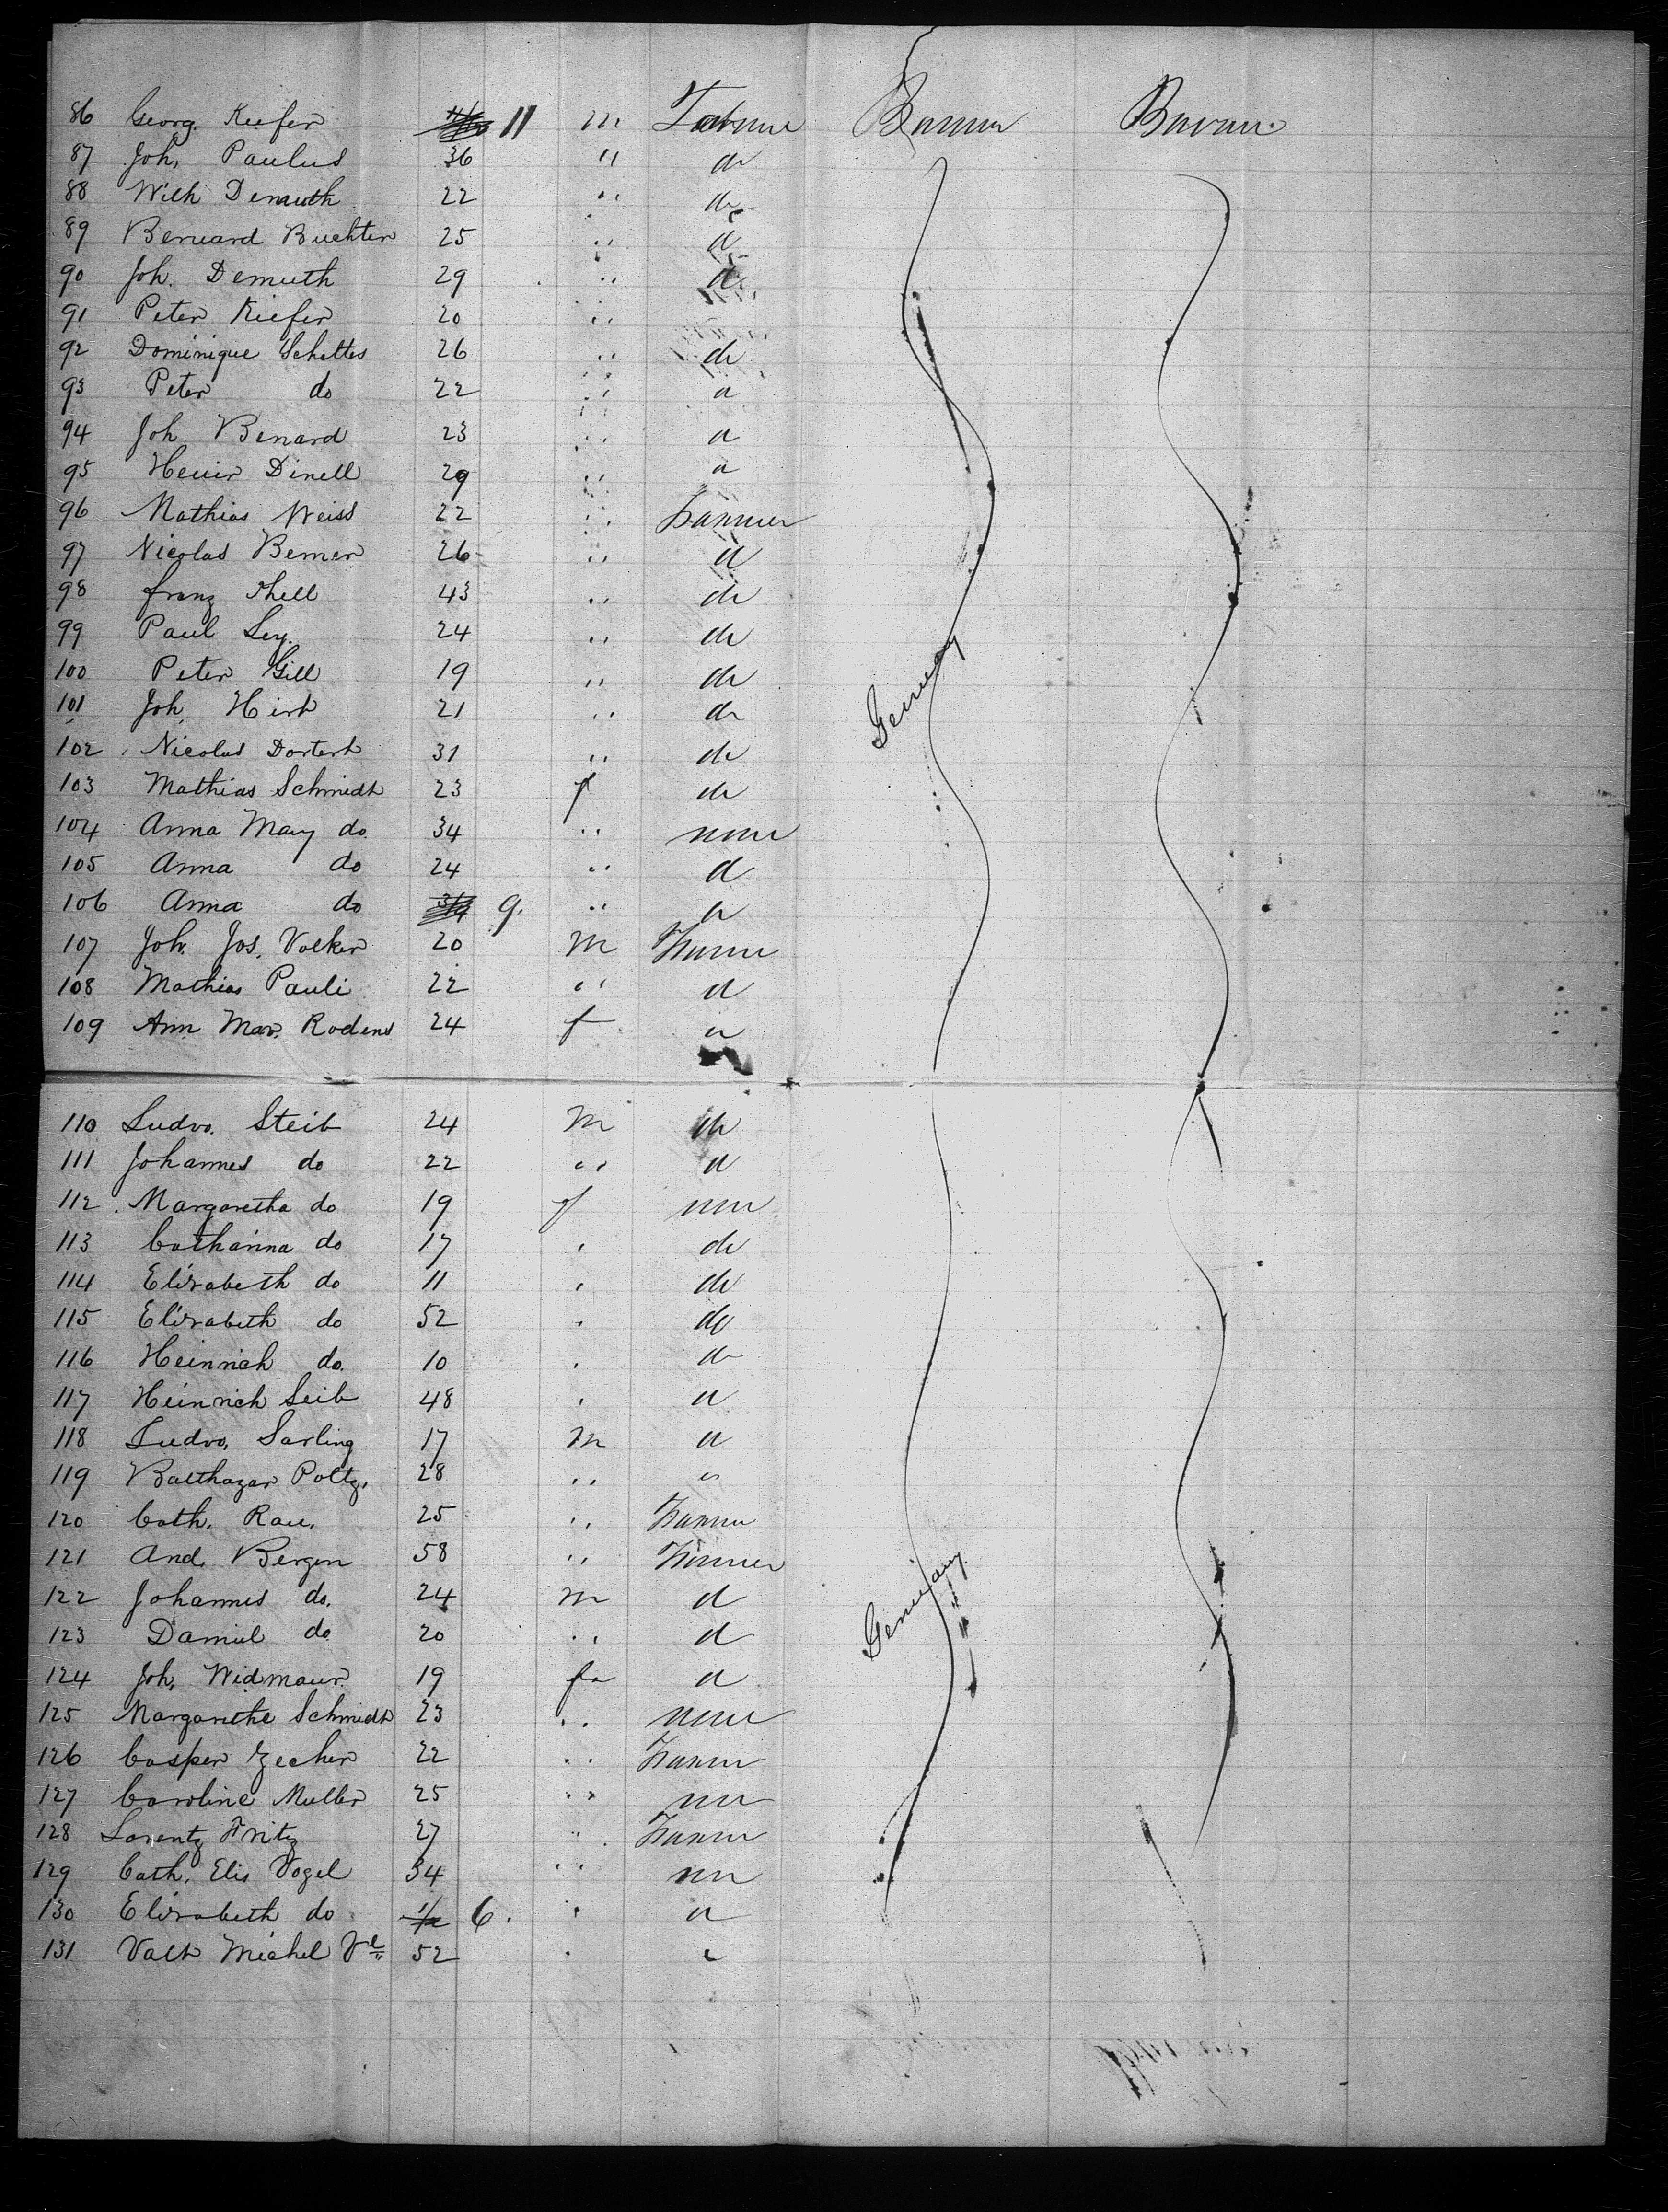 86 Georg. Kiefer 11 m
87 Joh. Paulus 36 " do
88 Wilh Demuth 22 " do
89 Bernard Buchter 25 " do
90 Joh. Demuth 29 " do
91 Peter Kiefer 20 "
92 Dominique Scheltes 26 " do
93 Peter do 22 " do
94 Joh Benard 23 " do
95 Dinell 29 " do
96 Mathias Weiss 22 " Farmer
97 Nicolas Bemer 26 " do
98 Franz 43 " do
99 Paul Ley. 24 " do
100 Peter Gill 19 " do
101 Joh. Hirt 21 " do
102 Nicolas Dortert 31 " do
103 Mathias Schmidt 23 f do
104 Anna Mary do. 34 " none
105 Anna do 24 " do
106 Anna do 9. " do
107 Joh. Jos. Volker 20 m Farmer
108 Mathias Pauli 22 " do
109 Ann Mar. Rodens 24 f do
Germany
110 Ludw. Steib 24 m do
111 Johannes do 22 " do
112 Margaretha do 19 f none
113 Catharina do 17 " do
114 Elisabeth do 11 " do
115 Elisabeth do 52 " do
116 Heinrich do. 10 " do
117 Heinrich Seib 48 " do
118 Ludw. Sarling 17 m do
119 Balthazar Poltz. 28 " do
120 Cath. Rau. 25 " Farmer
121 And. Bergen 58 " Farmer
122 Johannes do. 24 m do
123 Daniel do 20 " do
124 Joh. Widmaur 19 do
125 Margarithe Schmidt 23 " none
126 Casper Zecher 22 " Farmer
127 Caroline Muller 25 " none
128 Lorentz Fritz 27 " Farmer
129 Cath. Elis Vogel 34 " none
130 Elisabeth do 6. " do
131 Valt Michel Vl 52 "
Germany